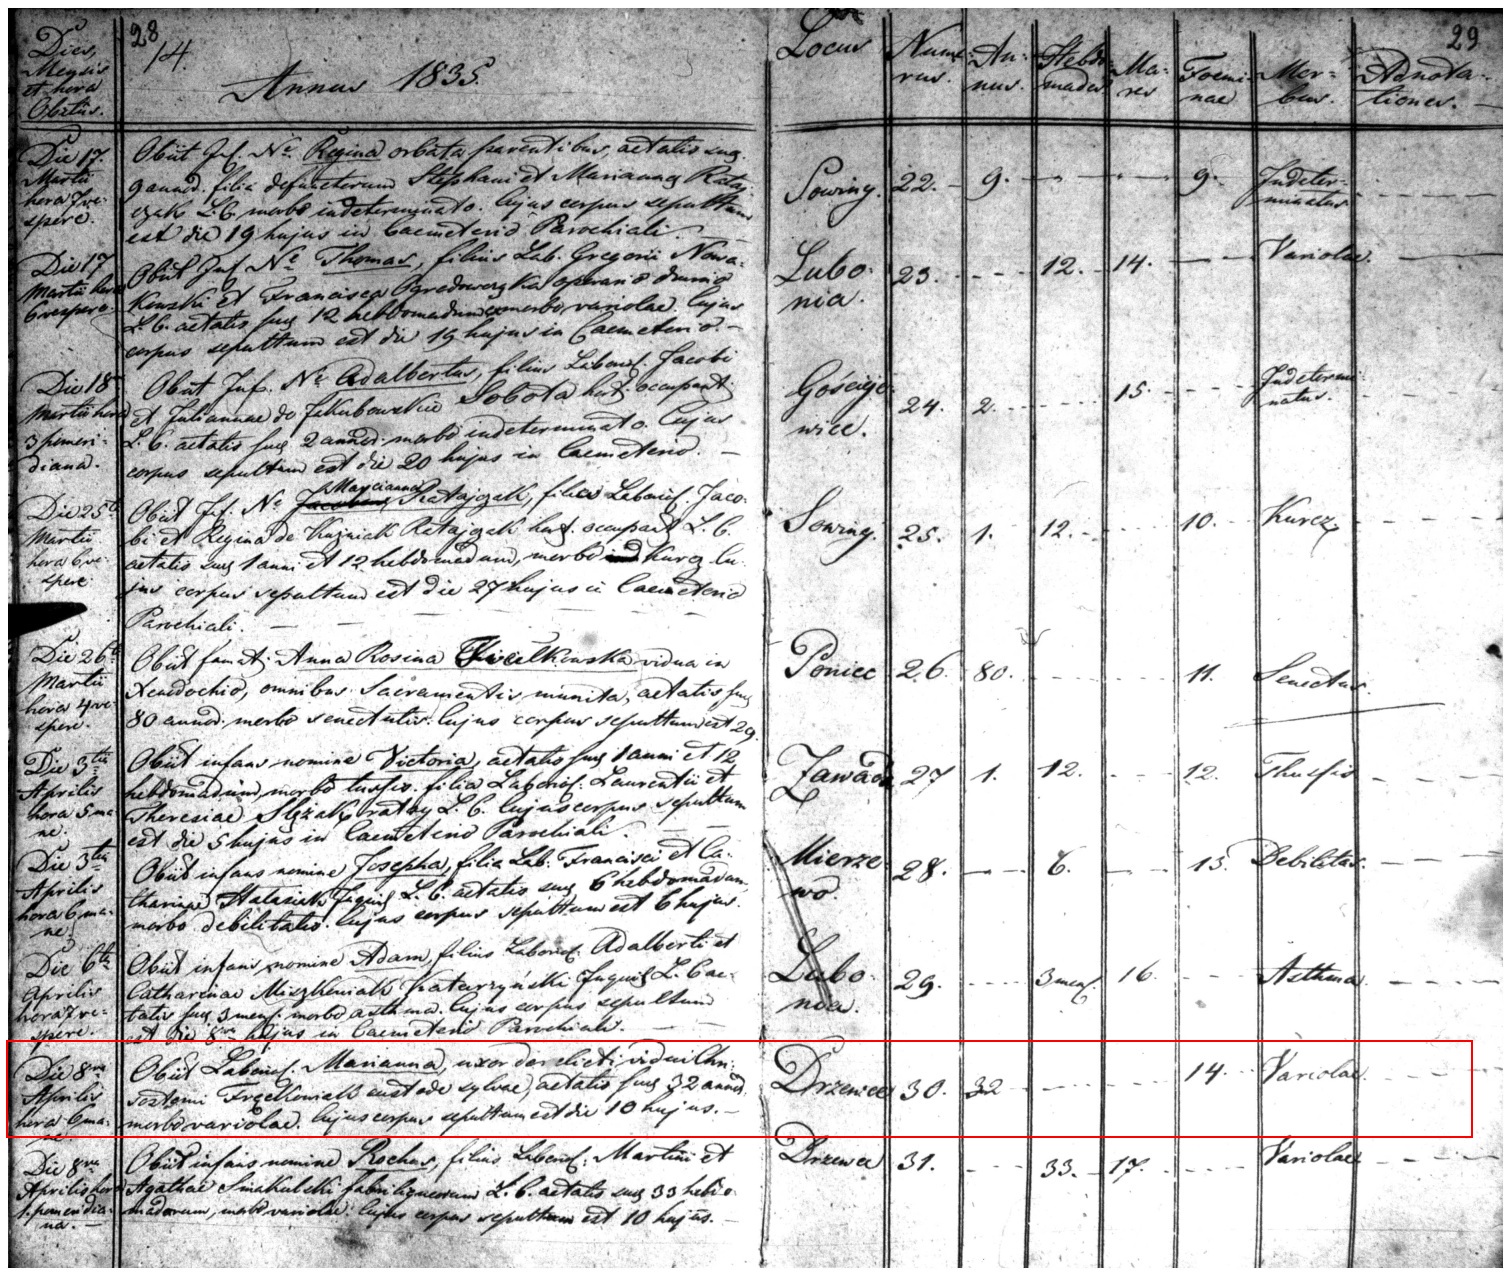 28
14
29
Dies,
Mensis
et hora
Obitus.
Annus 1835.
Locus
Nume-
rus.
An-
nus.
Hebdo-
madae
Ma-
res
Foemi-
nae
Mor-
bus.
Adnota-
tiones.
Die 17.
Martii
hora 7 ve-
spere.
Obiit Inf. Ne Regina orbata parentibus, aetatis suae
9 annor. filia defunctorum Stephani et Mariannae Rataj-
czak L.C. morbo indeterminato. Cujus corpus sepultum
est die 19 hujus in Caemeterio Parochiali.
Sowiny. 22. 9. 9. Indeter-
minatus.
Die 17
Martii hora
6 vespere.
Obiit Inf. Ne Thomas, filius Lab. Gregorii Nowa-
kowski et Francisca Ogrodowczyka operario
L.C. aetatis suae 12 hebdomadum morbo variolae. Cujus
corpus sepultum est die 19 hujus in Caemeterio.
Lubo-
nia. 23. 12. 14. Variolae.
Die 18
Martii hora
3 pomeri-
diana.
Obiit Inf. Ne Adalbertus, filius Laborios. Jacobi
et Juliannae de Jakubowskie Sobota hort. occupant.
L.C. aetatis suae 2 annor. morbo indeterminato. Cujus
corpus sepultum est die 20 hujus in Caemeterio.
Gościeje-
wice. 24. 2. 15. Indetermi-
natus.
Die 25ta
Martii
hora 6 ve-
spere.
Marcianna
Obiit Inf. Ne Ratajczak, filia Laborios. Jaco-
bi et Regina de Kuźniak Ratajczak hort. occupant L.C.
aetatis suae 1 anni et 12 hebdomadum, morbo Kurcz Cu-
jus corpus sepultum est die 27 hujus in Caemeterio
Parochiali.
Sowiny. 25. 1. 12. 10. Kurcz.
Die 26ta
Martii
hora 4 ve-
spere.
Obiit famat. Anna Rosina vidua in
Xenodochio, omnibus Sacramentis munita, aetatis suae
80 annor. morbo senectutis. Cujus corpus sepultum est 29.
Poniec 26. 80. 11. Senectus.
Die 3tia
Aprilis
hora 5 ma-
ne.
Obiit infans nomine Victoria, aetatis suae 1 anni et 12
hebdomadum, morbo tussis. filia Laborios. Laurentii et
Theresiae Ślęzak ratay L.C. Cujus corpus sepultum
est die 5 hujus in Caemeterio Parochiali.
Zawada 27 1. 12. 12. Thussis
Die 3tia
Aprilis
hora 6 ma-
ne.
Obiit infans nomine Josepha, filia Lab. Francisci et Ca-
tharinae Inquil. L.C. aetatis suae 6 hebdomadum,
morbo debilitatis. Cujus corpus sepultum est 6 hujus.
Mierze-
wo. 28. 6. 13. Debilitas.
Die 6ta
Aprilis
hora 7 ve-
spere.
Obiit infans nomine Adam, filius Laborios. Adalberti et
Catharinae Inquil. L.C. ae-
tatis suae 3 mens. morbo asthma. Cujus corpus sepultum
est die 8va hujus in Caemeterio Parochiali.
Lubo-
nia. 29. 3 mens. 16. Asthma
Die 8va
Aprilis
hora 6 ma-
ne.
Obiit Laborios. Marianna, uxor derelicti vidui Chri-
stostomi Frąckowiak custode sylvae, aetatis suae 32 annor.
morbo variolae. Cujus corpus sepultum est die 10 hujus.
Drzewce 30. 32 14. Variolae.
Die 8va
Aprilis hora
1 pomeridia-
na.
Obiit infans nomine Rochus, filius Laborios. Martini et
Agathae L.C. aetatis suae 33 hebdo-
madarum, morbo variolae. Cujus corpus sepultum est 10 hujus.
Drzewce 31. 33. 17. Variolae